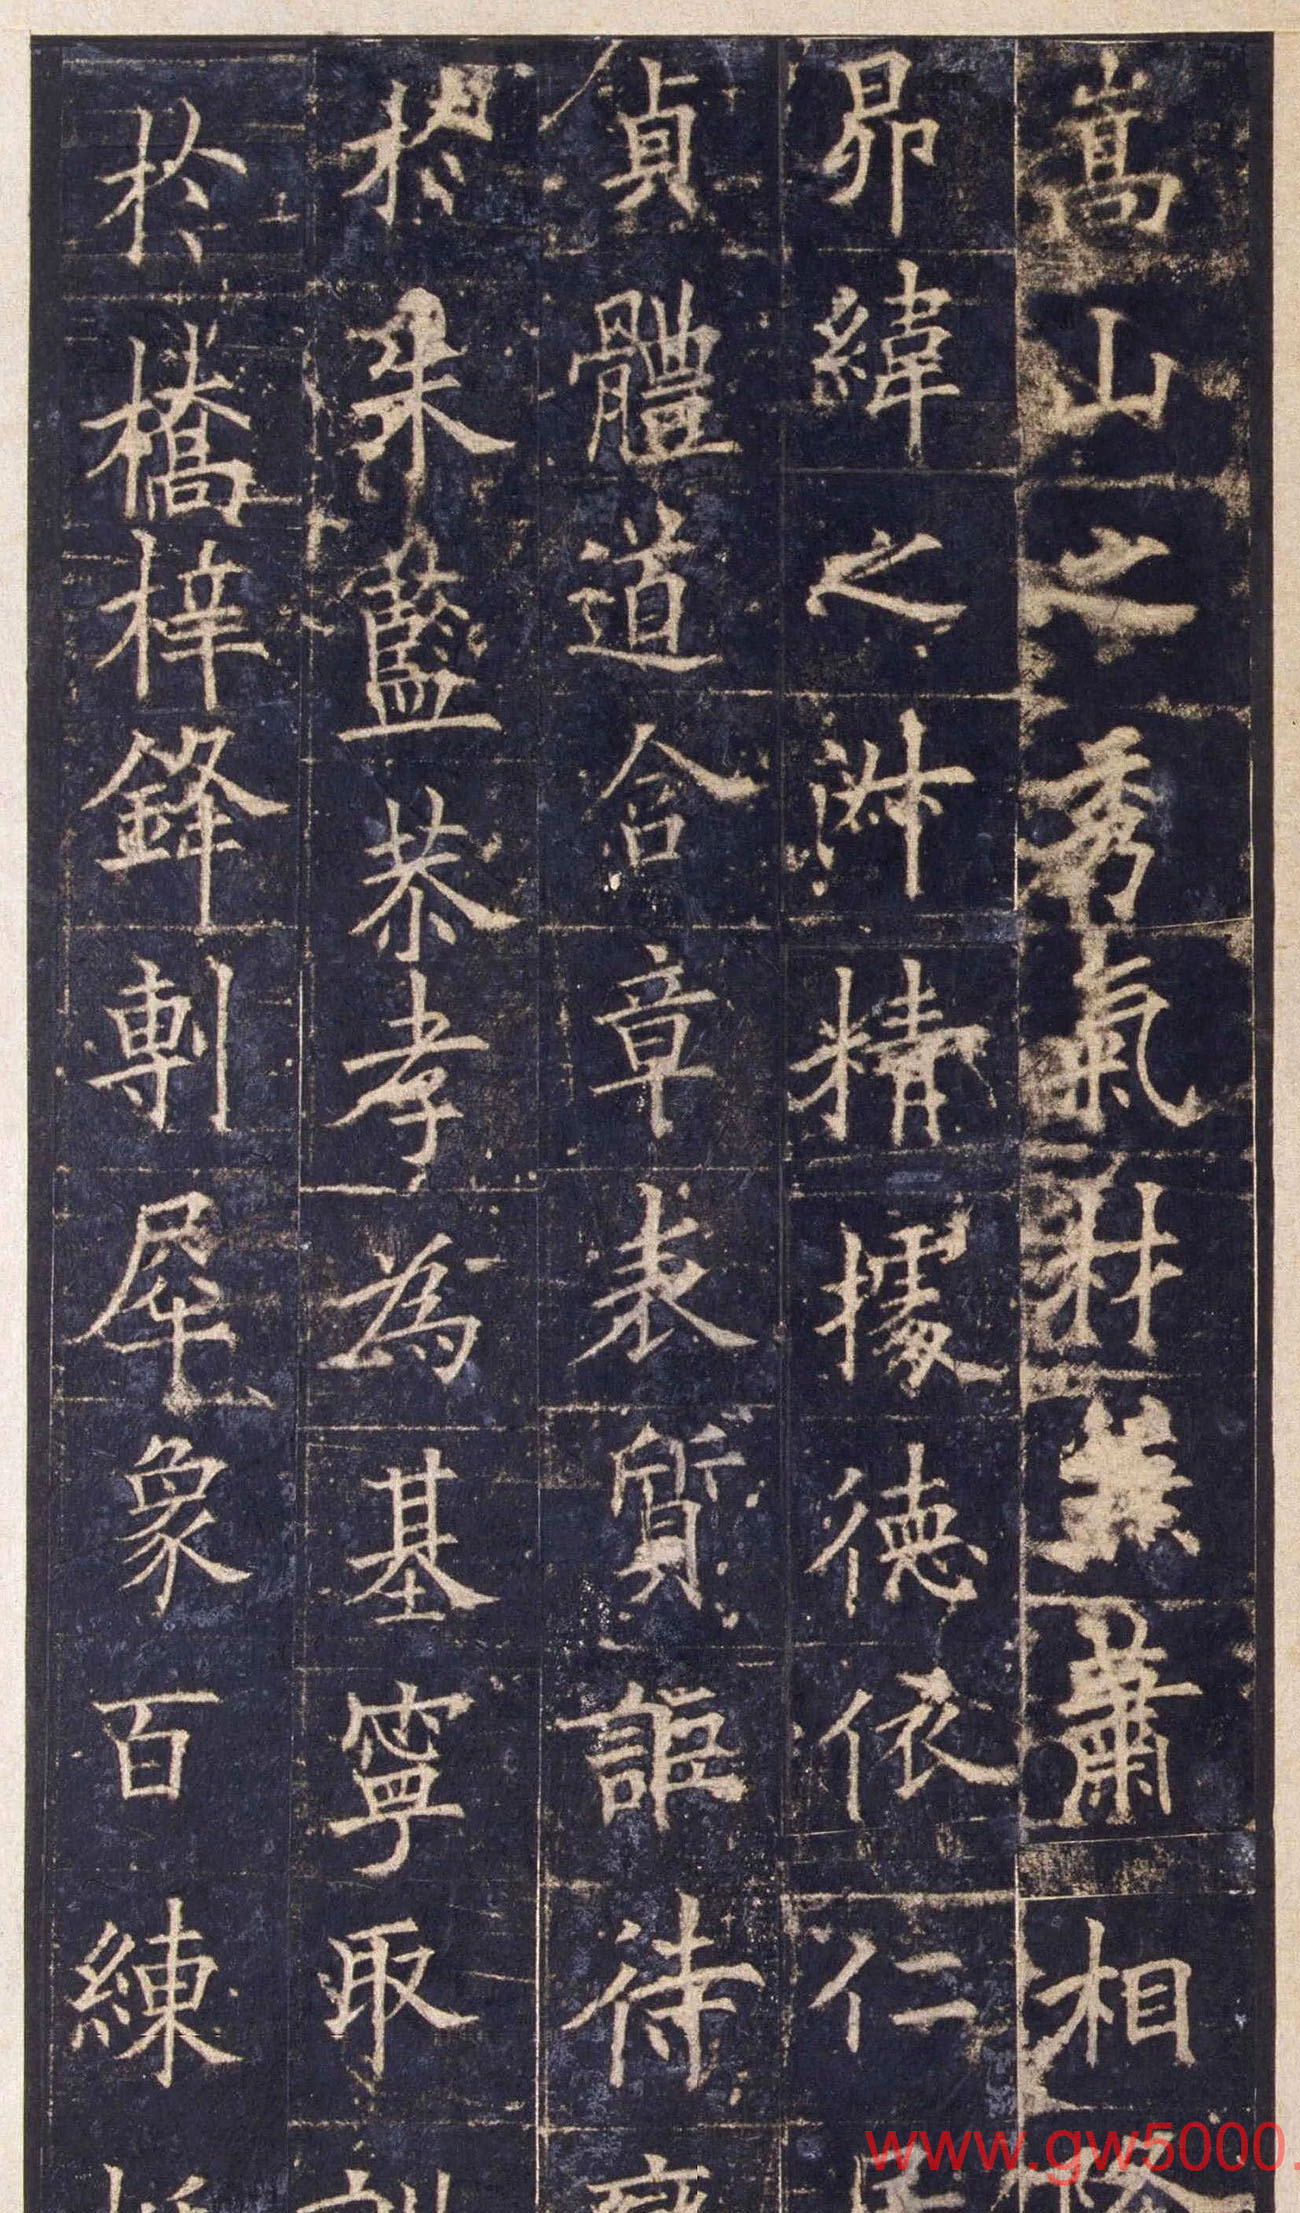 嵩山之秀氣材兼蕭相
昴緯之淑精據德依仁
貞體道含章表質詎待
於朱藍恭孝為基寧取
於橋梓鋒剸犀象百練
www.gw5000.